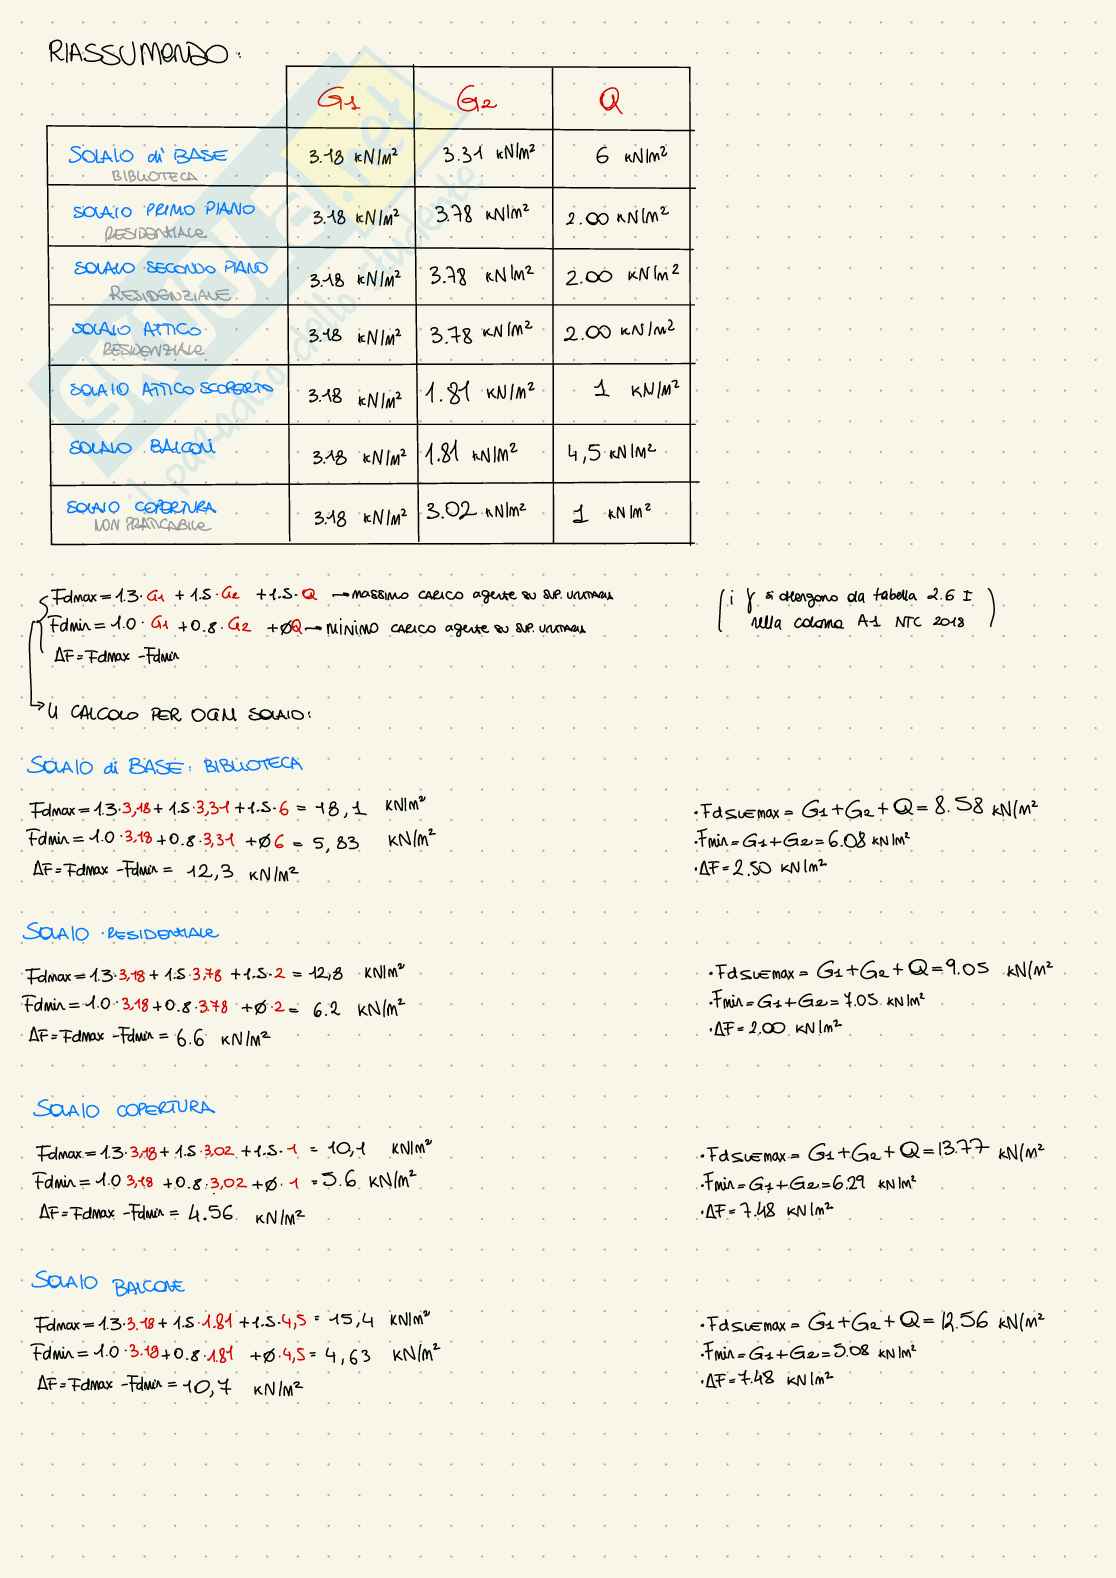 RIASSUMENDO:
G1 G2 Q
SOLAIO di BASE 3.18 KN/m² 3.31 KN/m² 6 KN/m²
BIBLIOTECA
SOLAIO PRIMO PIANO 3.18 KN/m² 3.78 KN/m² 2.00 KN/m²
RESIDENZIALE
SOLAIO SECONDO PIANO 3.18 KN/m² 3.78 KN/m² 2.00 KN/m²
RESIDENZIALE
SOLAIO ATTICO 3.18 KN/m² 3.78 KN/m² 2.00 KN/m²
RESIDENZIALE
SOLAIO ATTICO SCOPERTO 3.18 KN/m² 1.81 KN/m² 1 KN/m²
SOLAIO BALCONI 3.18 KN/m² 1.81 KN/m² 4,5 KN/m²
SOLAIO COPERTURA 3.18 KN/m² 3.02 KN/m² 1 KN/m²
NON PRATICABILE
il paradiso dello studente
Fdmax = 1.3·G1 + 1.5·G2 + 1.5·Q → MASSIMO CARICO agente su SUP. UNITARIA
Fdmin = 1.0·G1 + 0.8·G2 + ØQ → MINIMO CARICO agente su SUP. UNITARIA
ΔF = Fdmax - Fdmin
(i γ si ottengono da tabella 2.6 I
nella colonna A1 NTC 2018)
→ CALCOLO PER OGNI SOLAIO:
SOLAIO di BASE: BIBLIOTECA
Fdmax = 1.3·3,18 + 1.5·3,31 + 1.5·6 = 18,1 KN/m²
Fdmin = 1.0·3,18 + 0.8·3,31 + Ø6 = 5,83 KN/m²
ΔF = Fdmax - Fdmin = 12,3 KN/m²
·FdSLEmax = G1 + G2 + Q = 8.58 KN/m²
·Fmin = G1 + G2 = 6.08 KN/m²
·ΔF = 2.50 KN/m²
SOLAIO RESIDENZIALE
Fdmax = 1.3·3,18 + 1.5·3,78 + 1.5·2 = 12,8 KN/m²
Fdmin = 1.0·3,18 + 0.8·3.78 + Ø·2 = 6.2 KN/m²
ΔF = Fdmax - Fdmin = 6.6 KN/m²
·FdSLEmax = G1 + G2 + Q = 9.05 KN/m²
·Fmin = G1 + G2 = 7.05 KN/m²
·ΔF = 2,00 KN/m²
SOLAIO COPERTURA
Fdmax = 1.3·3,18 + 1.5·3,02 + 1.5·1 = 10,1 KN/m²
Fdmin = 1.0 3,18 + 0.8·3,02 + Ø·1 = 5.6 KN/m²
ΔF = Fdmax - Fdmin = 4.56 KN/m²
·FdSLEmax = G1 + G2 + Q = 13.77 KN/m²
·Fmin = G1 + G2 = 6.29 KN/m²
·ΔF = 7.48 KN/m²
SOLAIO BALCONE
Fdmax = 1.3·3.18 + 1.5·1.81 + 1.5·4,5 = 15,4 KN/m²
Fdmin = 1.0·3.18 + 0.8·1.81 + Ø·4,5 = 4,63 KN/m²
ΔF = Fdmax - Fdmin = 10,7 KN/m²
·FdSLEmax = G1 + G2 + Q = 12.56 KN/m²
·Fmin = G1 + G2 = 5.08 KN/m²
·ΔF = 7.48 KN/m²